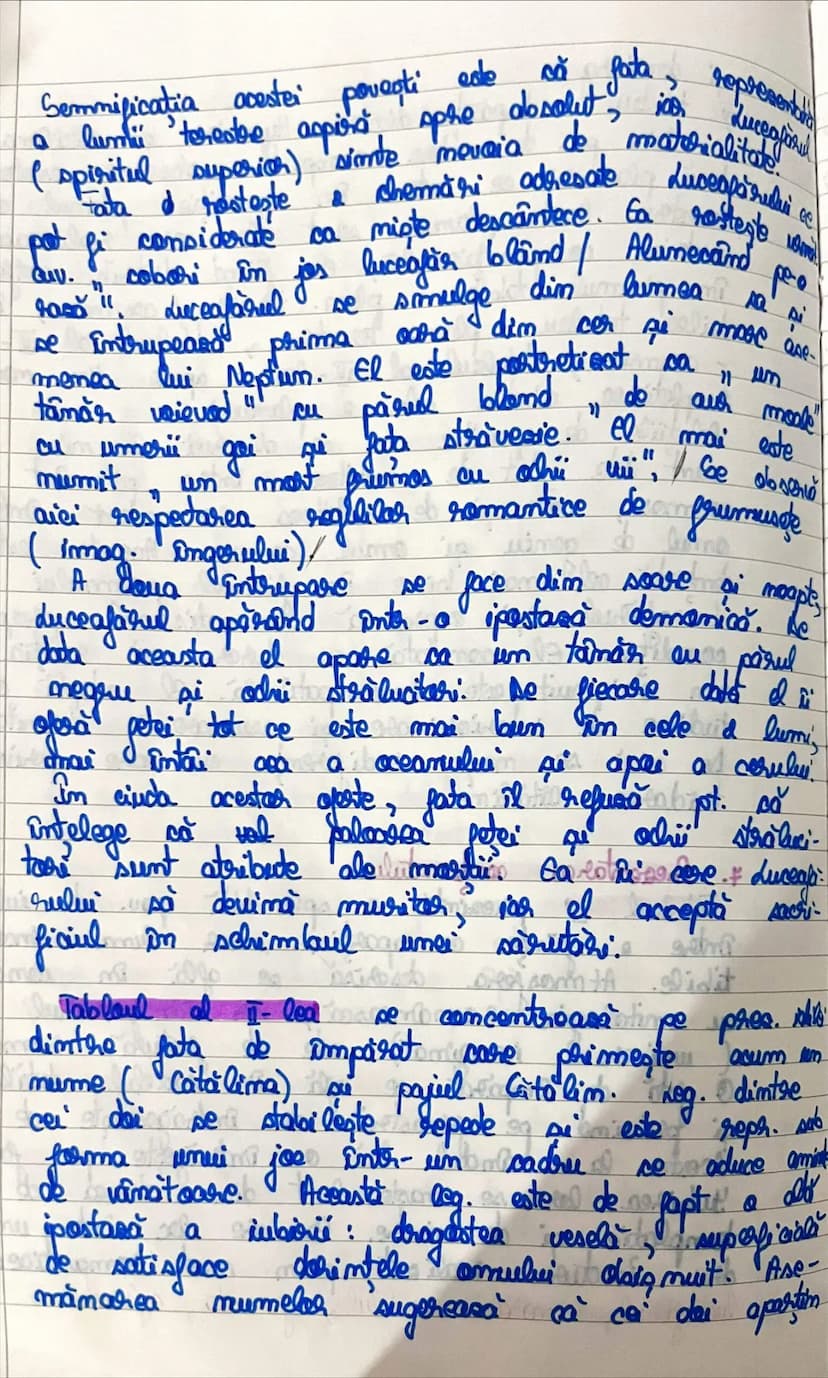 Semnificația acestei povești este că fata, reprezentantă
a lumii terestre aspiră spre absolut, iar Luceafărul
(spiritul superior) simte nevoia de materialitate.
Fata rostește 2 chemări adresate Luceafărului ce
pot fi considerate ca niște descântece. Ea rostește
cuv. „cobori în jos luceafăr blând / Alunecând pe-o
rază". Luceafărul se smulge din lumea sa și
se întrupează prima oară din cer și mare ase-
menea lui Neptun. El este portretizat ca „un
tânăr voievod" cu părul blond „de aur moale"
cu umerii goi și fața străvezie. El mai este
numit „un mort frumos cu ochii vii", / Se observă
aici respectarea regulilor romantice de frumusețe
(imag. îngerului) /
A doua întrupare se face din soare și noapte,
Luceafărul apărând într-o ipostază demonică. De
data aceasta el apare ca un tânăr cu părul
negru și ochii strălucitori. De fiecare dată el îi
oferă fetei tot ce este mai bun în cele 2 lumi,
mai întâi cea a oceanului și apoi a cerului.
În ciuda acestor oferte, fata îl refuză pt. că
înțelege că paloarea feței și ochii străluci-
tori sunt atribute ale morții. Ea îi cere Luceafă-
rului să devină muritor, iar el acceptă sacri-
ficiul în schimbul unei sărutări.
Tabloul al II-lea se concentrează pe prez. idilei
dintre fata de împărat care primește acum un
nume (Cătălina) și pajul Cătălin. Leg. dintre
cei doi se stabilește repede și este repr. sub
forma unui joc într-un cadru ce aduce aminte
de vânătoare. Această leg. este de fapt o altă
ipostază a iubirii: dragostea veselă, superficială
de satisface dorințele omului obișnuit. Ase-
mănarea numelor sugerează că cei doi aparțin